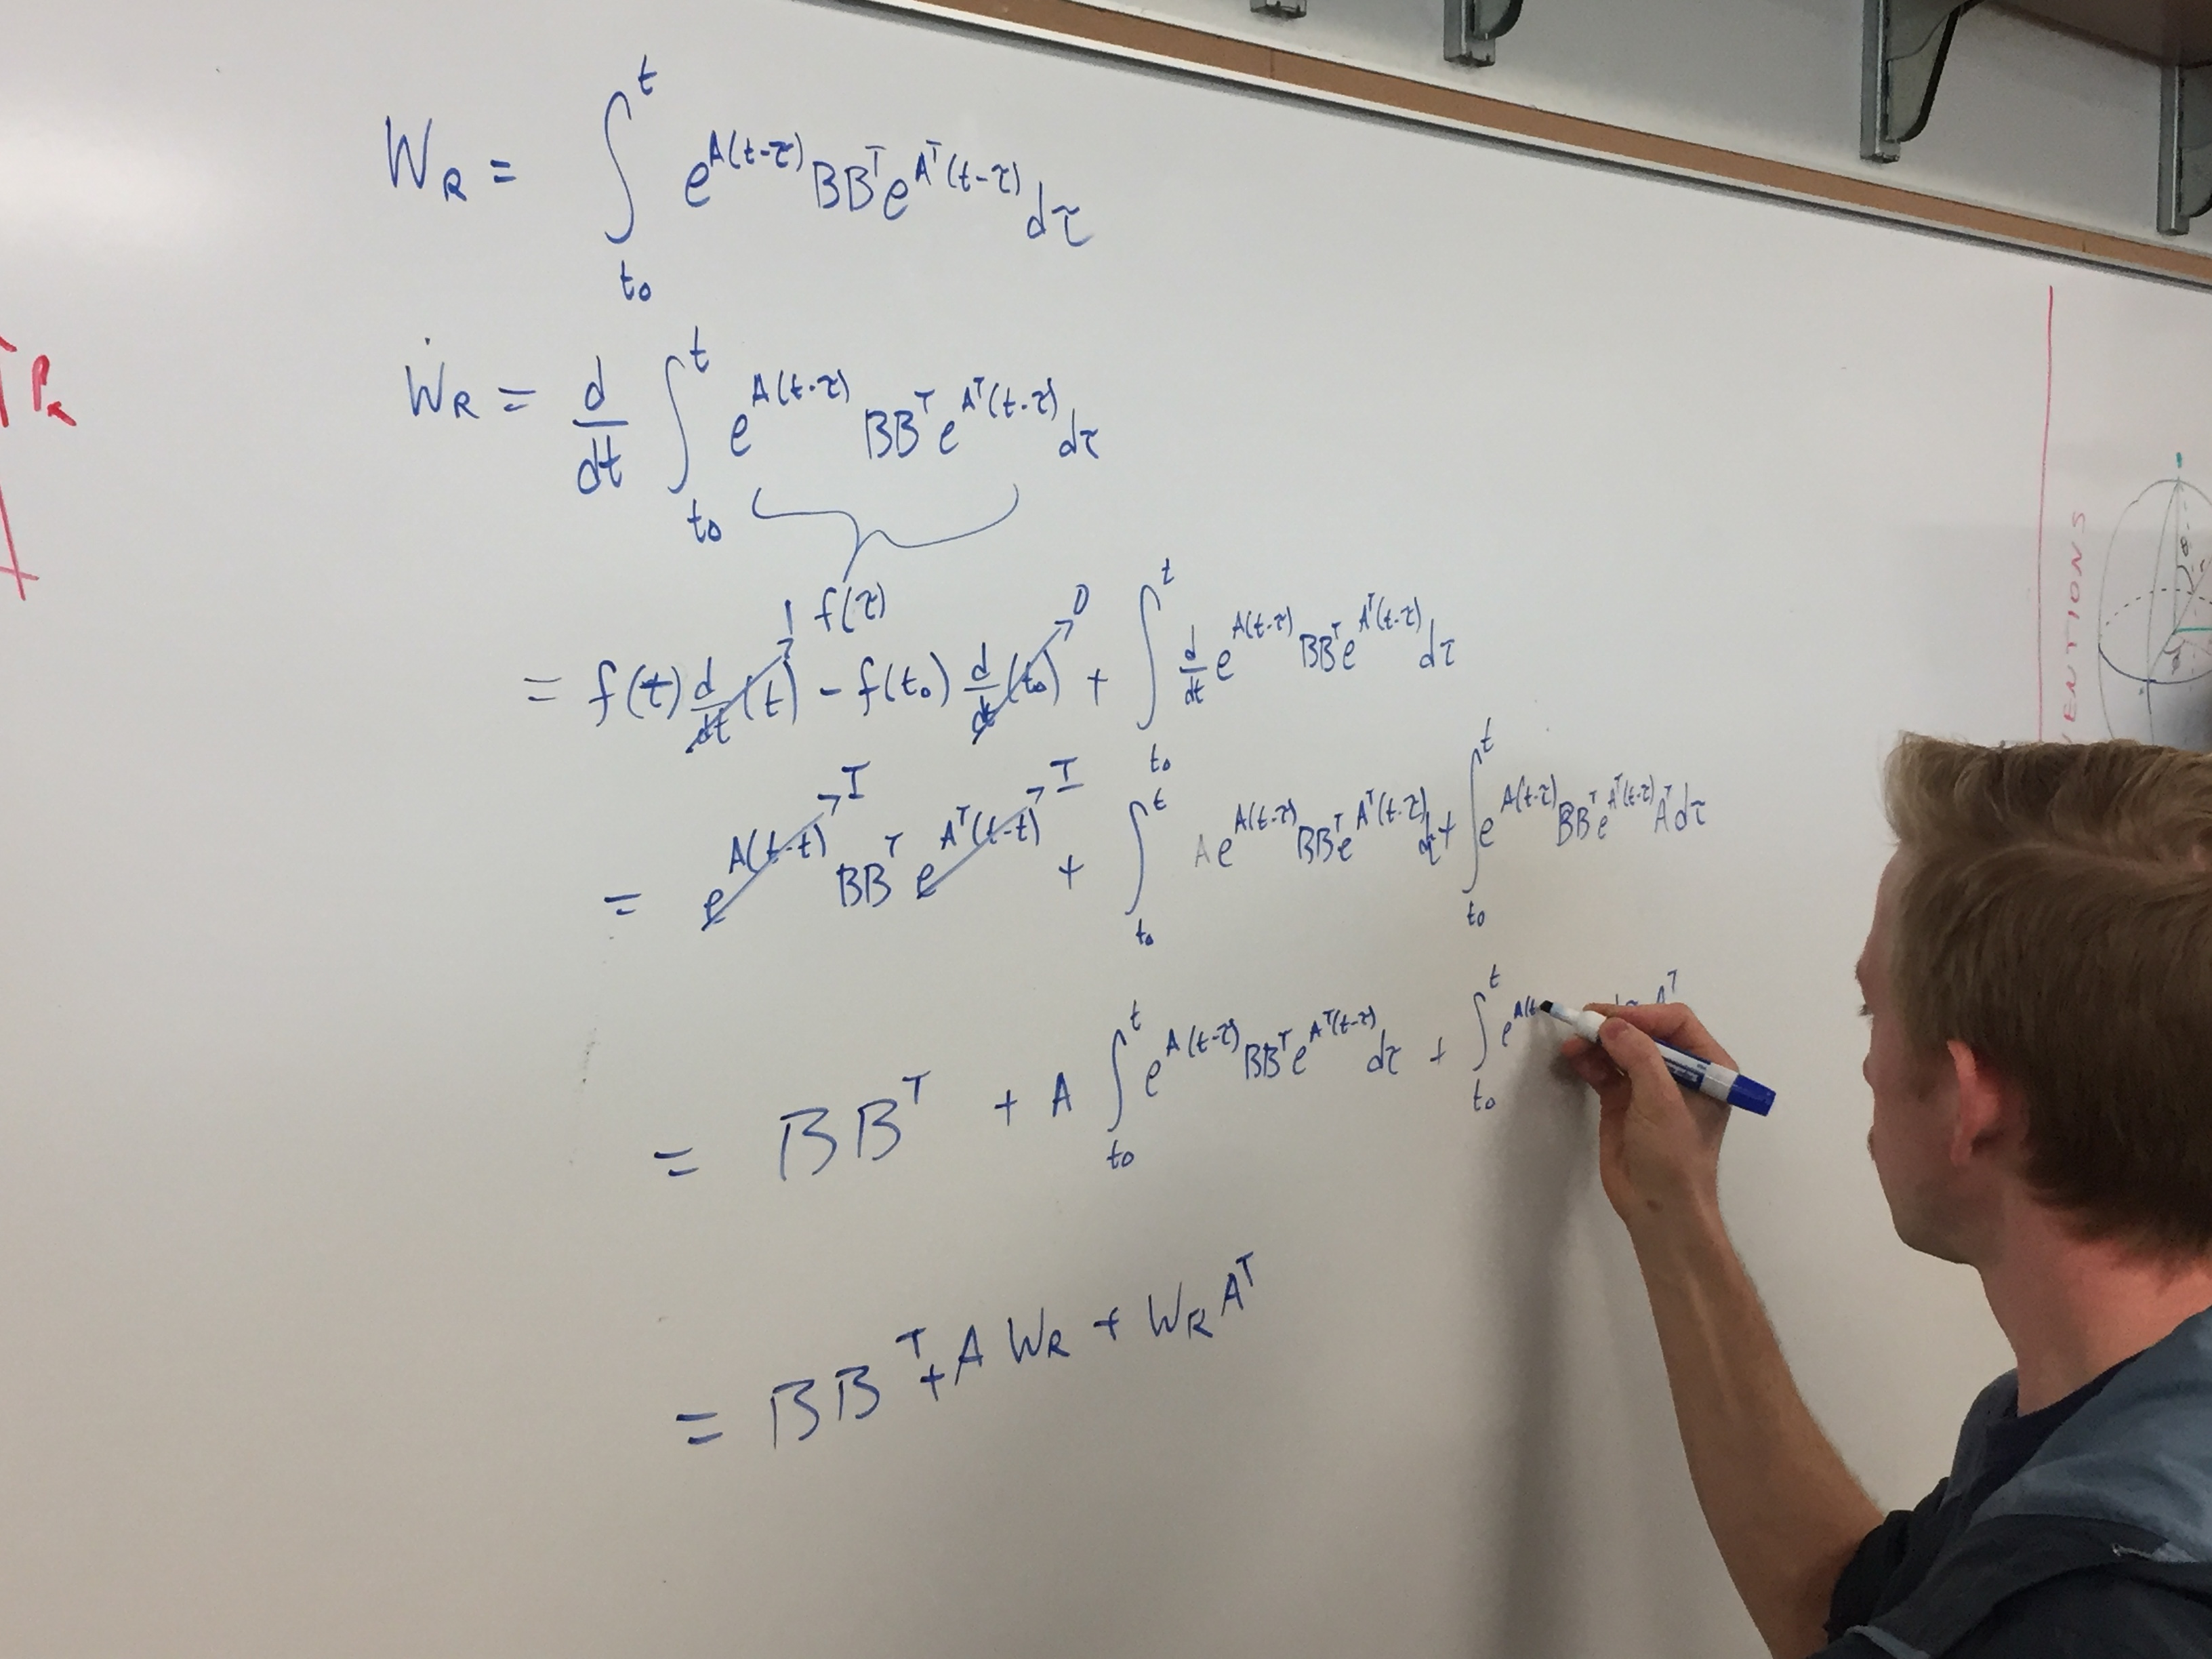 W_R = ∫_{t_0}^{t} e^{A(t-τ)} BB^T e^{A^T(t-τ)} dτ
Ẇ_R = d/dt ∫_{t_0}^{t} e^{A(t-τ)} BB^T e^{A^T(t-τ)} dτ
f(τ)
1 0
= f(t) d/dt (t) - f(t_0) d/dt (t_0) + ∫_{t_0}^{t} d/dt e^{A(t-τ)} BB^T e^{A^T(t-τ)} dτ
I I
= e^{A(t-t)} BB^T e^{A^T(t-t)} + ∫_{t_0}^{t} A e^{A(t-τ)} BB^T e^{A^T(t-τ)} dτ + ∫_{t_0}^{t} e^{A(t-τ)} BB^T e^{A^T(t-τ)} A^T dτ
= BB^T + A ∫_{t_0}^{t} e^{A(t-τ)} BB^T e^{A^T(t-τ)} dτ + ∫_{t_0}^{t} e^{A(t dτ A^T
= BB^T + A W_R + W_R A^T